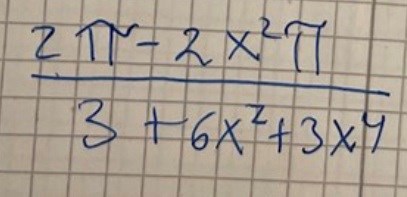 2π - 2x²π
3 + 6x² + 3x⁴